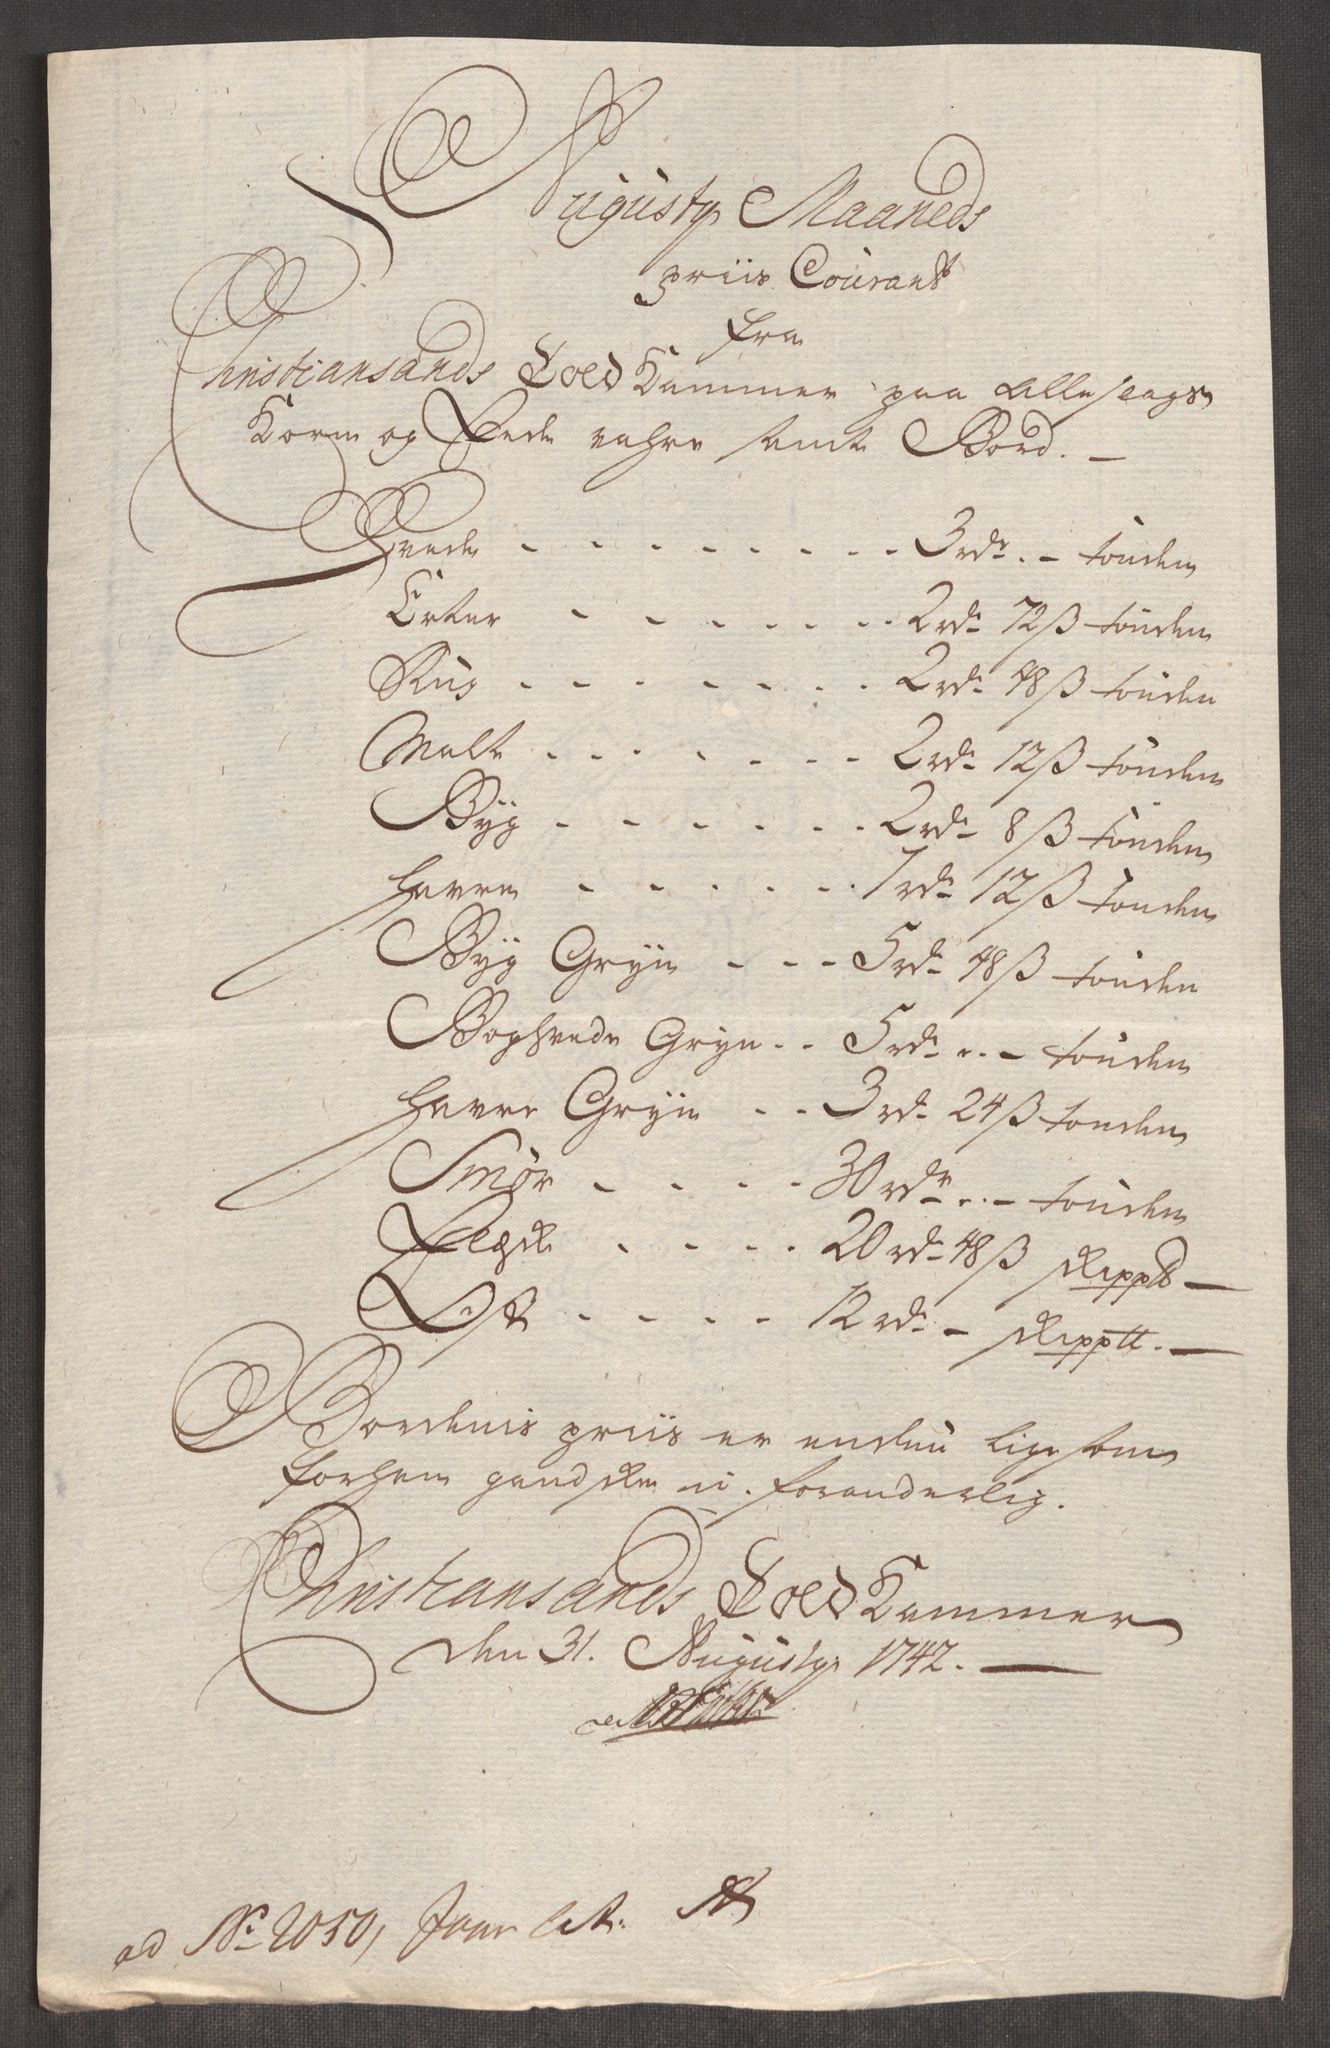 Augusty Maaneds
priis Courant
fra
Christiansands Told Kammer paa alle slags
Korn og Fede vahre samt Bord. —
Hvede - - - - - - - - 3 rdr. - tønden
Erter - - - - - - - 2 rd. 72 ß tønden
Rug - - - - - - - 2 rd. 48 ß tønden
Malt - - - - - - - 2 rd. 12 ß tønden
Byg - - - - - - 2 rd. 8 ß tønden
Havre - - - - - - 1 rd. 12 ß tønden
Byg Gryn - - - 5 rd. 48 ß tønden
Boghvede Gryn - - 5 rd. - tønden
Havre Gryn - - 3 rd. 24 ß tønden
Smør - - - - 30 rdr. - tønden
Flesk - - - - 20 rd. 48 ß skippd —
Ost - - - - 12 rd. - skippd. —
Bordenis priis er endnu lige som
forhen gandske u-foranderlig.
Christiansands Told Kammer
den 31. Augusty 1742. —
ad No. 2050, Faar Lit.